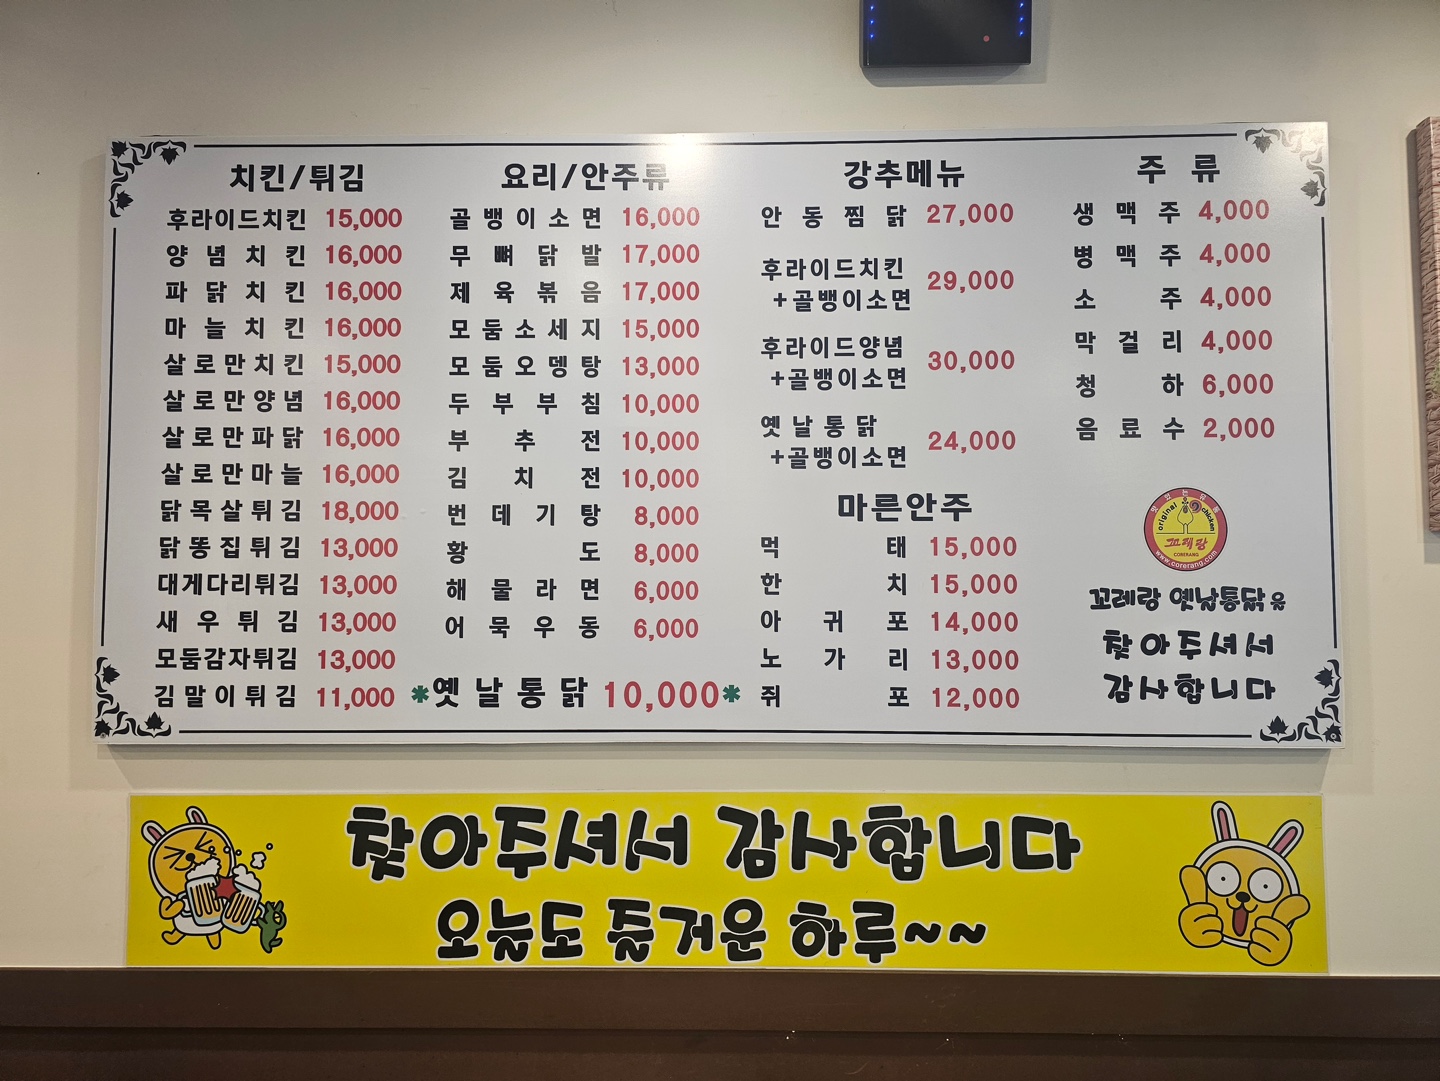 치킨/튀김
후라이드치킨 15,000
양념치킨 16,000
파닭치킨 16,000
마늘치킨 16,000
살로만치킨 15,000
살로만양념 16,000
살로만파닭 16,000
살로만마늘 16,000
닭목살튀김 18,000
닭똥집튀김 13,000
대게다리튀김 13,000
새우튀김 13,000
모둠감자튀김 13,000
김말이튀김 11,000
요리/안주류
골뱅이소면 16,000
무뼈닭발 17,000
제육볶음 17,000
모둠소세지 15,000
모둠오뎅탕 13,000
두부부침 10,000
부추전 10,000
김치전 10,000
번데기탕 8,000
황도 8,000
해물라면 6,000
어묵우동 6,000
*옛날통닭 10,000*
강추메뉴
안동찜닭 27,000
후라이드치킨
+골뱅이소면 29,000
후라이드양념
+골뱅이소면 30,000
옛날통닭
+골뱅이소면 24,000
마른안주
먹태 15,000
한치 15,000
아귀포 14,000
노가리 13,000
쥐포 12,000
주류
생맥주 4,000
병맥주 4,000
소주 4,000
막걸리 4,000
청하 6,000
음료수 2,000
original chicken
꼬레랑
CORERANG
www.corerang.com
꼬레랑 옛날통닭을
찾아주셔서
감사합니다
찾아주셔서 감사합니다
오늘도 즐거운 하루~~